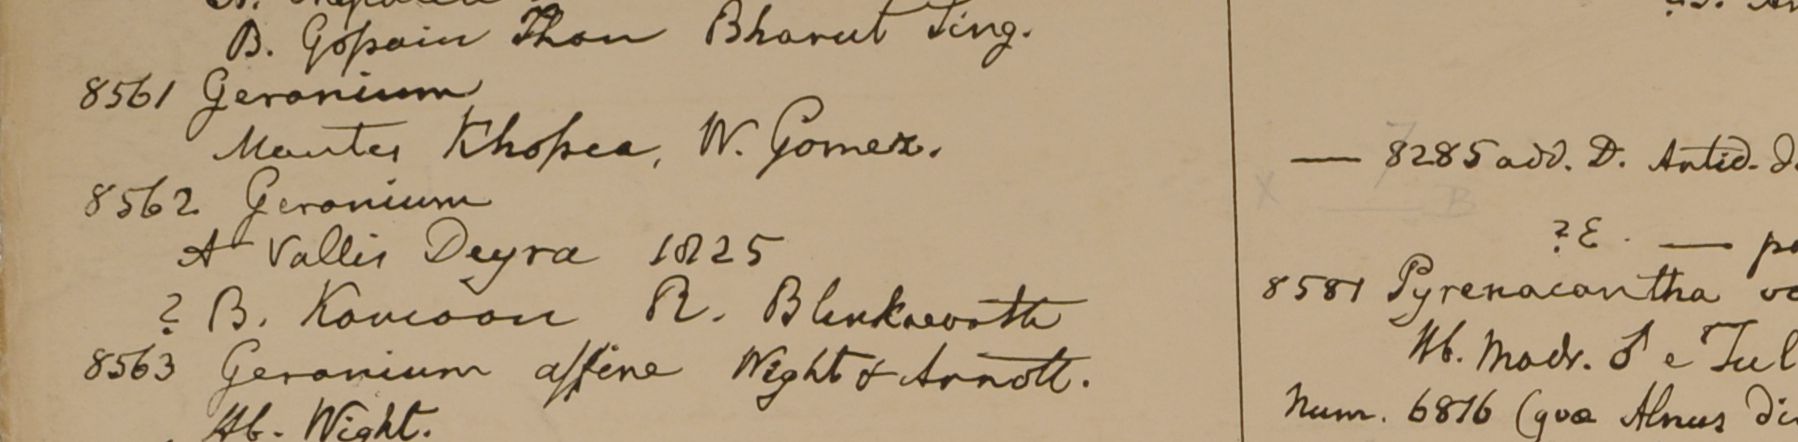 B. Gosain Than Bharut Sing.
8561 Geranium
Montes Khasea, W. Gomez.
8562 Geranium
A Vallis Deyra 1825
? B. Kamaon R. Blinkworth
8563 Geranium affine Wight & Arnott.
Hb. Wight.
— 8285 add. D. Antid.
? E. —
8581 Pyrenacantha
Hb. Madr. ♂ e
Num. 6816 (quae Alnus